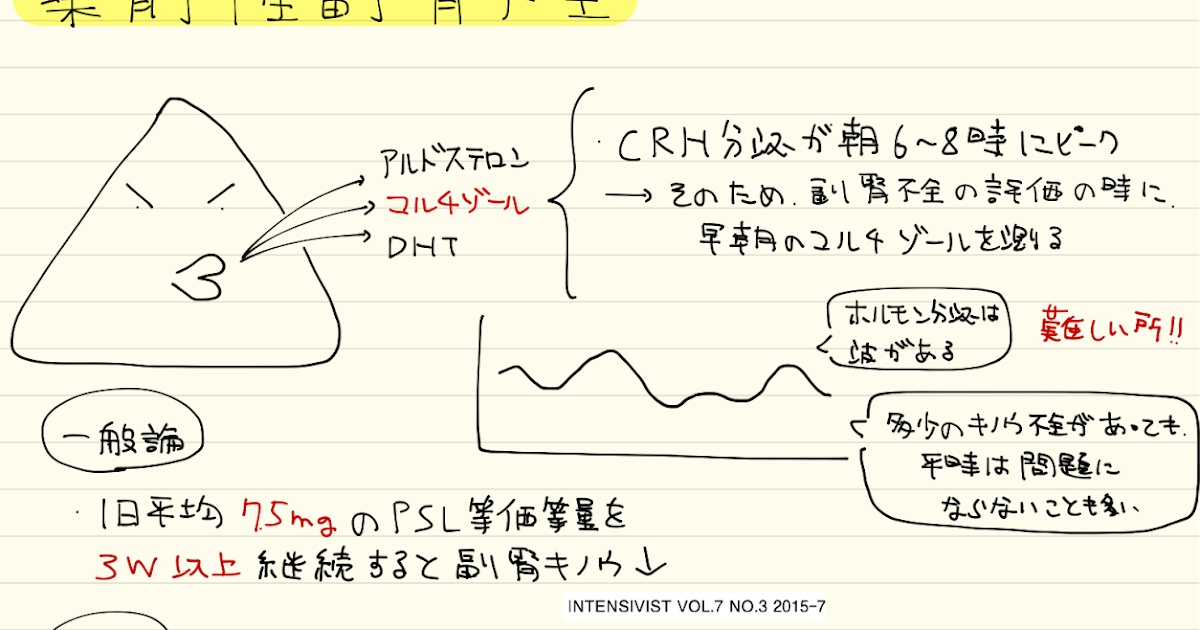 薬剤性副腎不全
アルドステロン
コル4ゾール
DHT
・CRH分泌が朝6~8時にピーク
→そのため、副腎不全の評価の時に、
早朝のコル4ゾールを測る
ホルモン分泌は
波がある
難しい所!!
多少のキノウ不全があっても、
平時は問題に
ならないことも多い
一般論
・1日平均7.5mgのPSL等価等量を
3W以上継続すると副腎キノウ↓
INTENSIVIST VOL.7 NO.3 2015-7